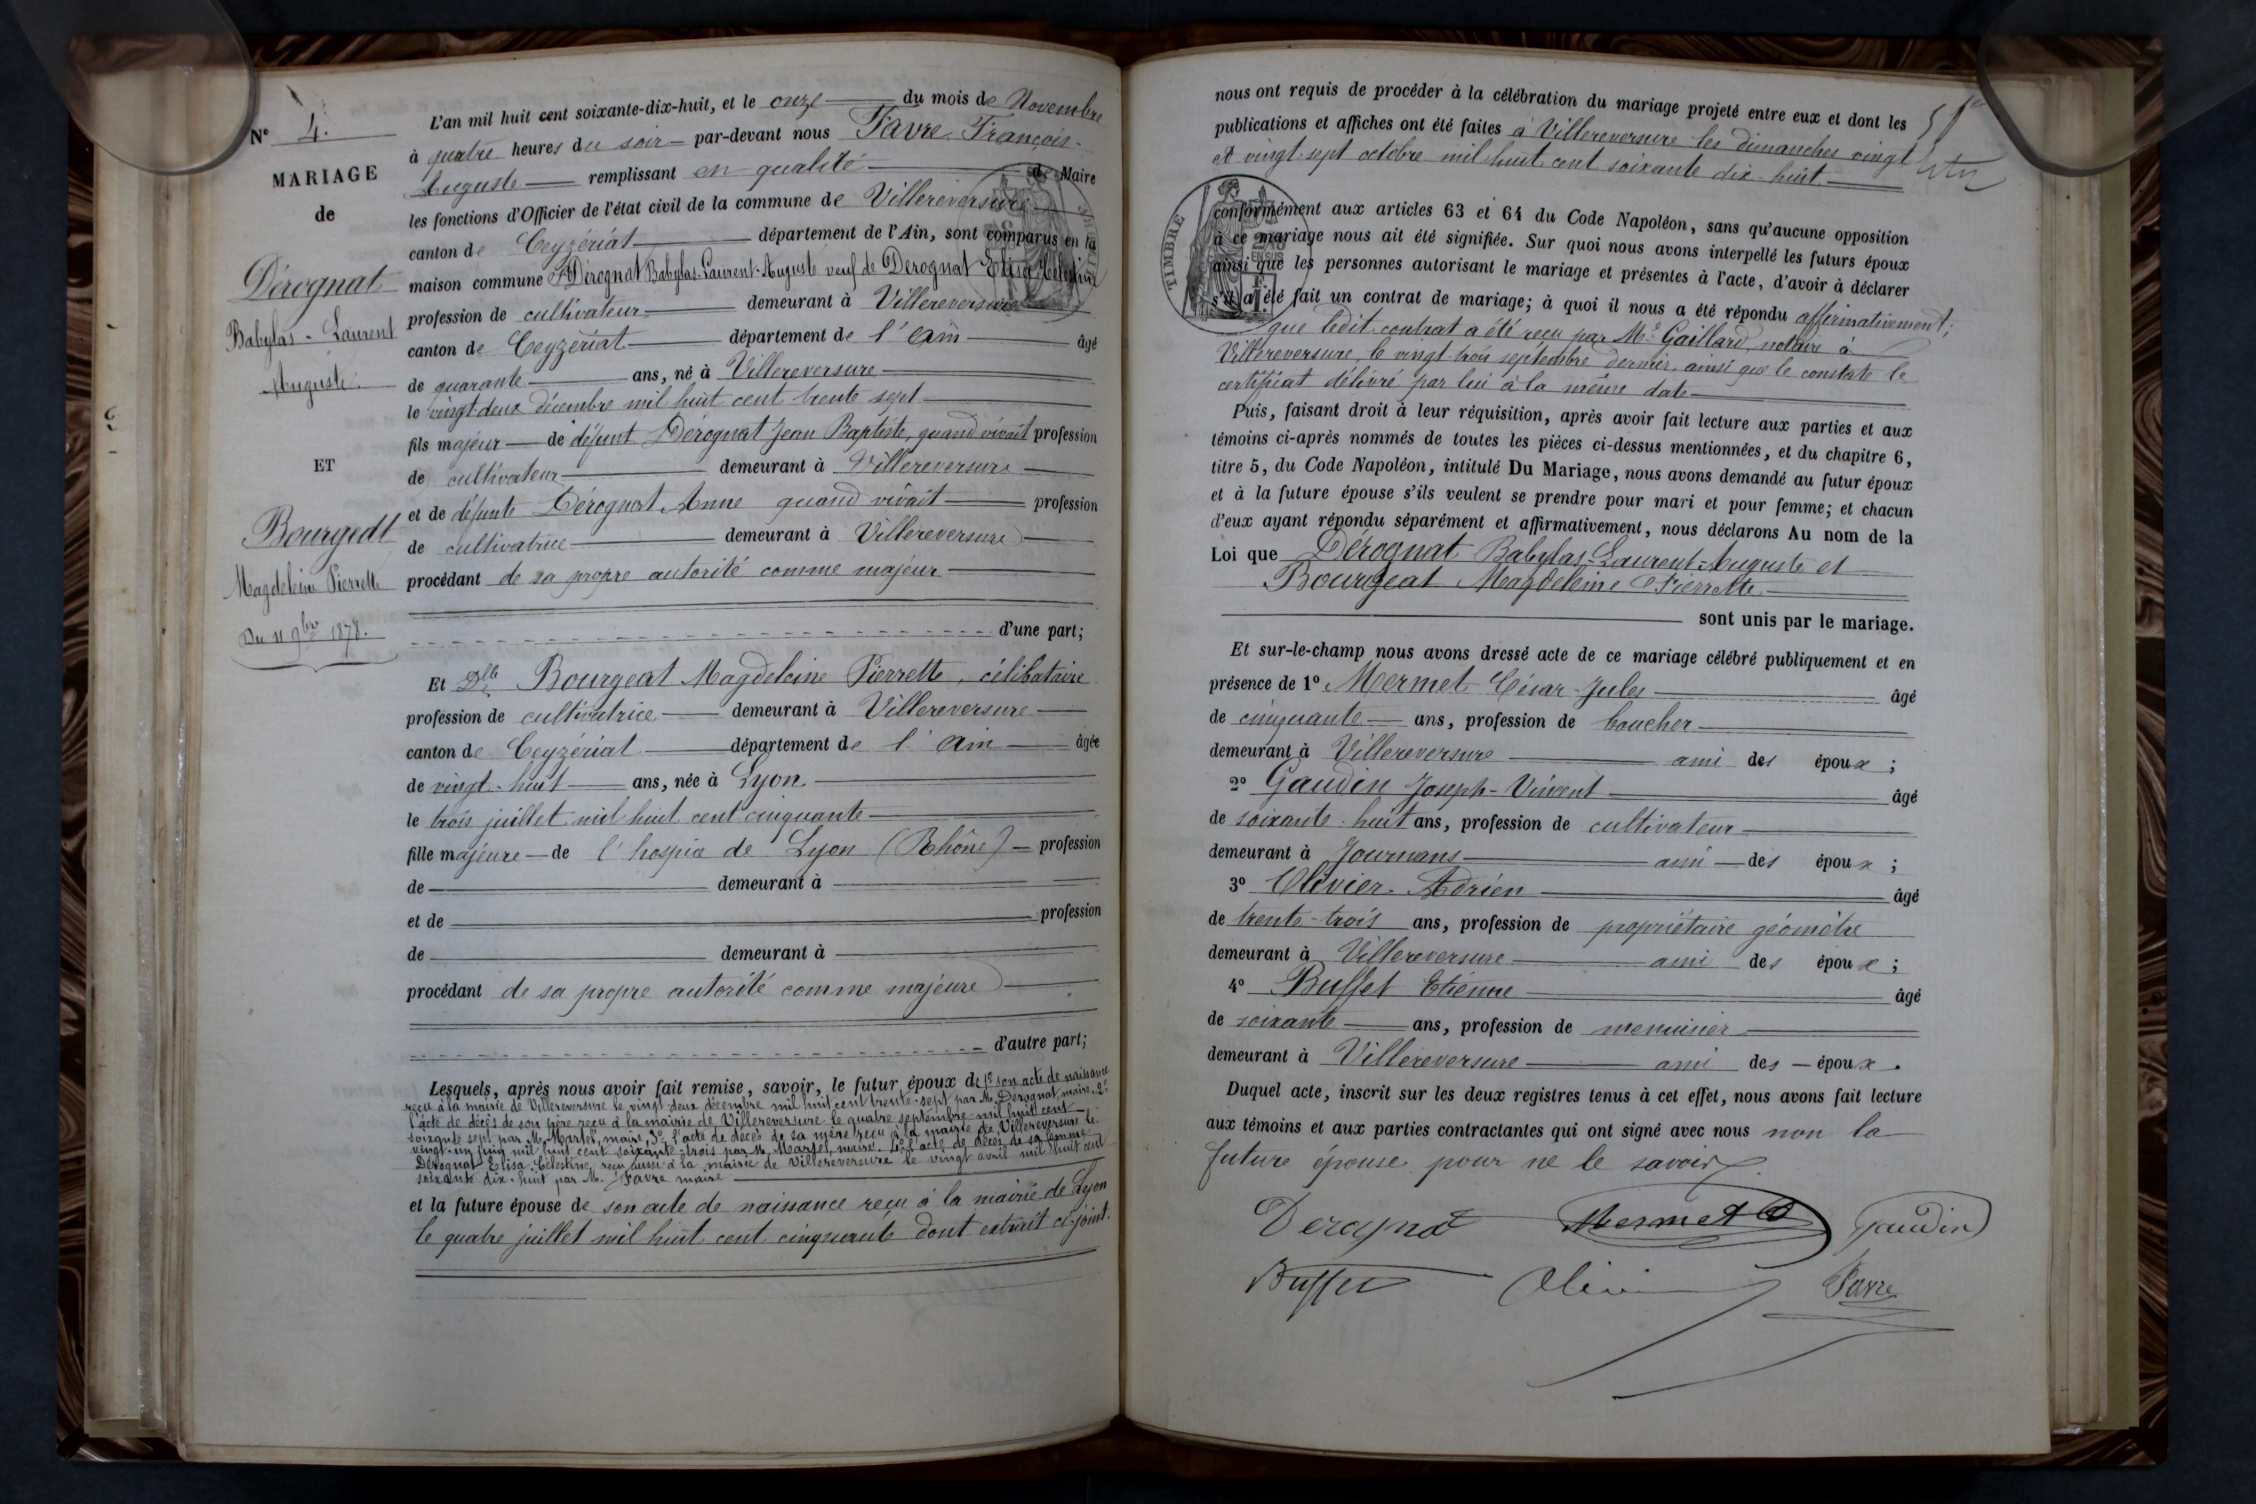 N° 4.
MARIAGE
de
Dérognat
Babylas - Laurent
Auguste
ET
Bourgeat
Magdeleine Pierrette
Du 11 9bre 1878.
L'an mil huit cent soixante-dix-huit, et le onze du mois de Novembre
à quatre heures du soir par-devant nous Favre François-
Auguste remplissant en qualité de Maire
les fonctions d'Officier de l'état civil de la commune de Villereversure
canton de Ceyzériat département de l'Ain, sont comparus en la
maison commune Dérognat Babylas-Laurent-Auguste veuf de Derognat Elisa Célestine
profession de cultivateur demeurant à Villereversure
canton de Ceyzériat département de l'Ain âgé
de quarante ans, né à Villereversure
le vingt-deux décembre mil huit cent trente sept
fils majeur de défunt Dérognat Jean Baptiste, quand vivait profession
de cultivateur demeurant à Villereversure
et de défunte Dérognat Anne quand vivait profession
de cultivatrice demeurant à Villereversure
procédant de sa propre autorité comme majeur
d'une part;
Et Dlle Bourgeat Magdeleine Pierrette, célibataire
profession de cultivatrice demeurant à Villereversure
canton de Ceyzériat département de l'Ain âgée
de vingt-huit ans, née à Lyon
le trois juillet mil huit cent cinquante
fille majeure de l'hospice de Lyon (Rhône) profession
de demeurant à
et de profession
de demeurant à
procédant de sa propre autorité comme majeure
d'autre part;
Lesquels, après nous avoir fait remise, savoir, le futur époux de 1° son acte de naissance
reçu à la mairie de Villereversure le vingt deux décembre mil huit cent trente-sept par M. Derognat, maire, 2°
l'acte de décès de son père reçu à la mairie de Villereversure le quatre septembre mil huit cent
soixante sept par M. Martel, maire, 3° l'acte de décès de sa mère reçu à la mairie de Villereversure le
vingt-un juin mil huit cent soixante-trois par M. Martel, maire. 4° l'acte de décès de sa femme
Dérognat Elisa Célestine, reçu aussi à la mairie de Villereversure le vingt avril mil huit cent
soixante dix-huit par M. Favre maire
et la future épouse de son acte de naissance reçu à la mairie de Lyon
le quatre juillet mil huit cent cinquante dont extrait ci-joint.
nous ont requis de procéder à la célébration du mariage projeté entre eux et dont les
publications et affiches ont été faites à Villereversure les dimanches vingt
et vingt-sept octobre mil huit cent soixante dix-huit
TIMBRE
conformément aux articles 63 et 64 du Code Napoléon, sans qu'aucune opposition
à ce mariage nous ait été signifiée. Sur quoi nous avons interpellé les futurs époux
ainsi que les personnes autorisant le mariage et présentes à l'acte, d'avoir à déclarer
s'il a été fait un contrat de mariage; à quoi il nous a été répondu affirmativement;
que ledit contrat a été reçu par Me Gaillard, notaire à
Villereversure, le vingt-trois septembre dernier, ainsi que le constate le
certificat délivré par lui à la même date
Puis, faisant droit à leur réquisition, après avoir fait lecture aux parties et aux
témoins ci-après nommés de toutes les pièces ci-dessus mentionnées, et du chapitre 6,
titre 5, du Code Napoléon, intitulé Du Mariage, nous avons demandé au futur époux
et à la future épouse s'ils veulent se prendre pour mari et pour femme; et chacun
d'eux ayant répondu séparément et affirmativement, nous déclarons Au nom de la
Loi que Dérognat Babylas-Laurent-Auguste et
Bourgeat Magdeleine Pierrette
sont unis par le mariage.
Et sur-le-champ nous avons dressé acte de ce mariage célébré publiquement et en
présence de 1° Mermet César-Jules âgé
de cinquante ans, profession de boucher
demeurant à Villereversure ami des époux;
2° Gaudin Joseph-Vincent âgé
de soixante-huit ans, profession de cultivateur
demeurant à Journans ami des époux;
3° Olivier Adrien âgé
de trente-trois ans, profession de propriétaire géomètre
demeurant à Villereversure ami des époux;
4° Buffet Etienne âgé
de soixante ans, profession de menuisier
demeurant à Villereversure ami des époux.
Duquel acte, inscrit sur les deux registres tenus à cet effet, nous avons fait lecture
aux témoins et aux parties contractantes qui ont signé avec nous non la
future épouse pour ne le savoir.
Derognat Mermet Gaudin
Buffet Olivier Favre